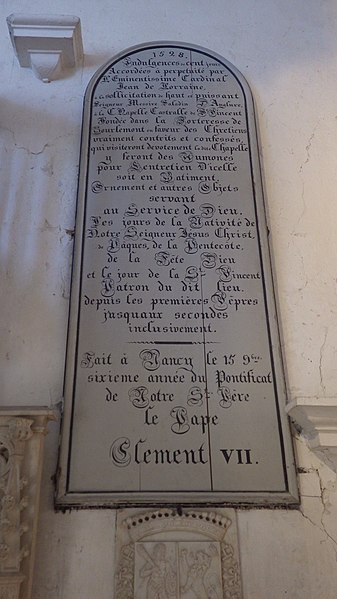 1528.
Indulgences de cent jours
Accordées à perpétuité par
L'Eminentissime Cardinal
Jean de Lorraine,
a la sollicitation de haut et puissant
Seigneur Messire Saladin D'Anglure,
à la Chapelle Castralle de St Vincent
Fondée dans la Forteresse de
Bourlemont en faveur des Chretiens
vraiment contrits et confessés,
qui visiteront devotement la dite Chapelle
y feront des Aumones
pour L'entretien D'icelle
soit en Batiment,
Ornement et autres Objets
servant
au Service de Dieu.
Les jours de la Nativité de
Notre Seigneur Jesus Christ,
de Pâques, de la Pentecôte,
de la Fête Dieu
et le jour de la St Vincent
Patron du dit Lieu,
depuis les premières Vêpres
jusquaux secondes
inclusivement.
Fait à Nancy le 15 9bre
sixieme année du Pontificat
de Notre St Père
le Pape
Clement VII.